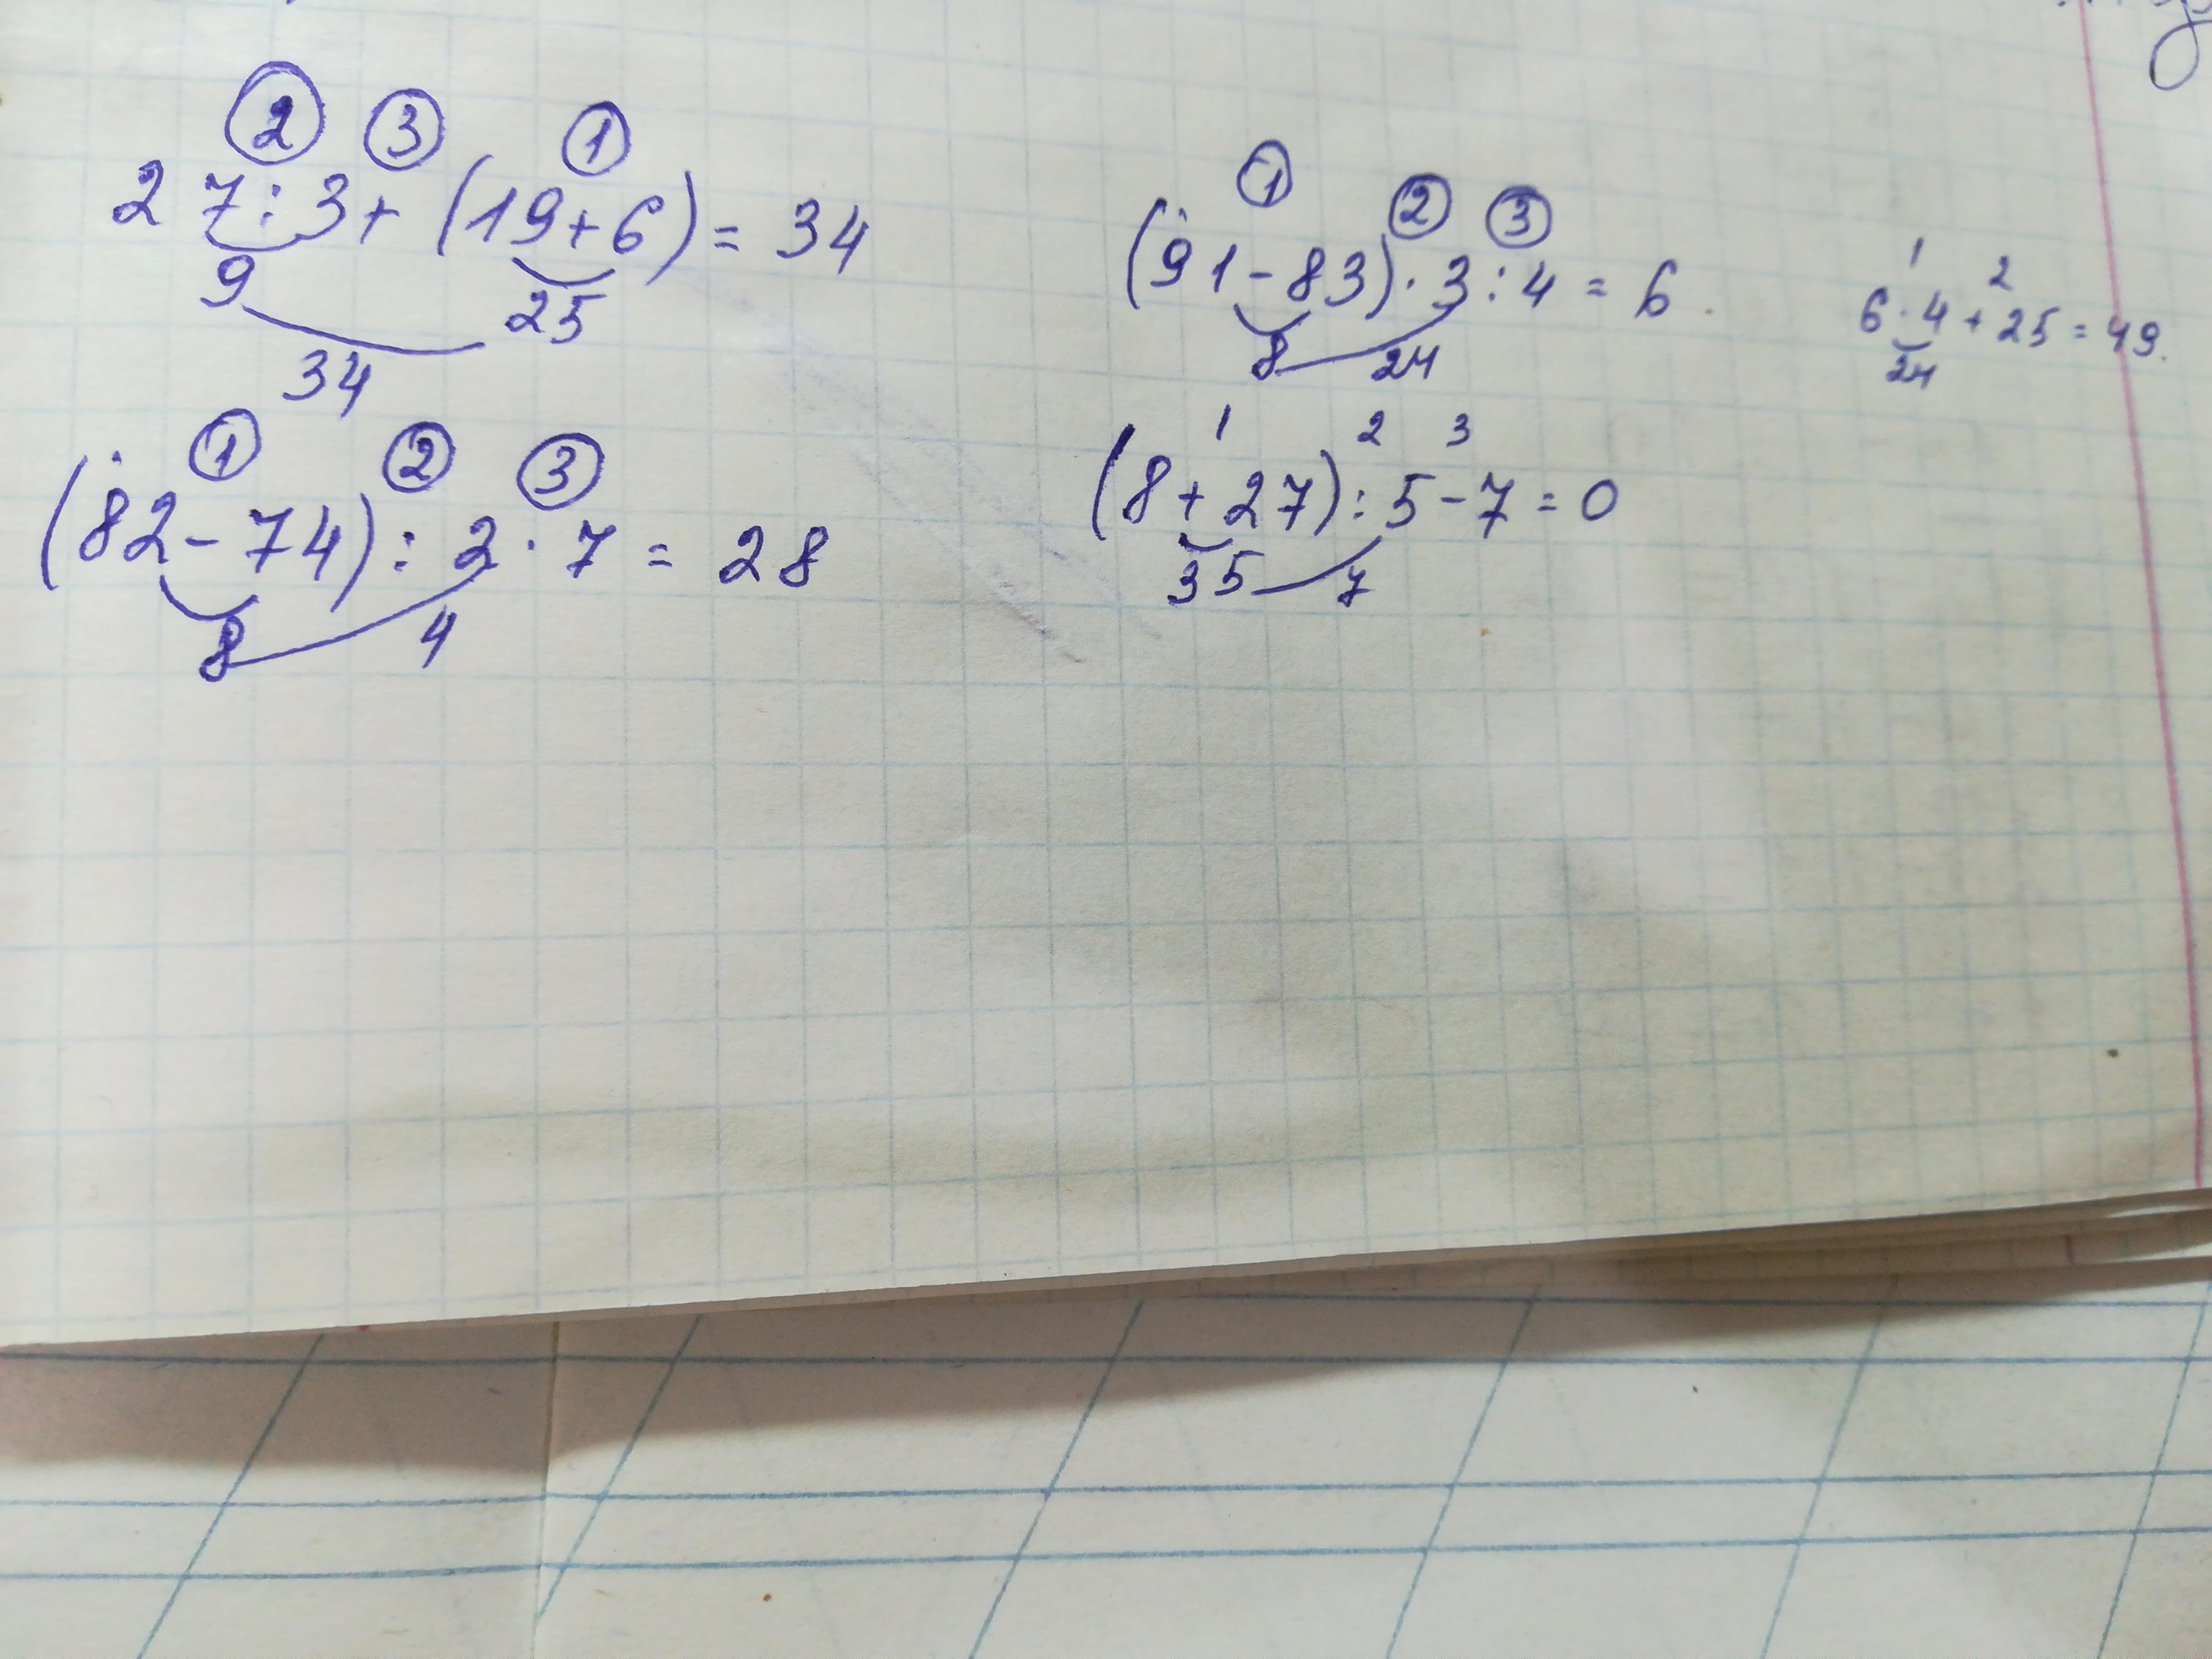 2 3 1
27 : 3 + (19 + 6) = 34
9 25
34
1 2 3
(82 - 74) : 2 · 7 = 28
8 4
1 2 3
(91 - 83) · 3 : 4 = 6.
8 24
1 2 3
(8 + 27) : 5 - 7 = 0
35 7
1 2
6 · 4 + 25 = 49.
24